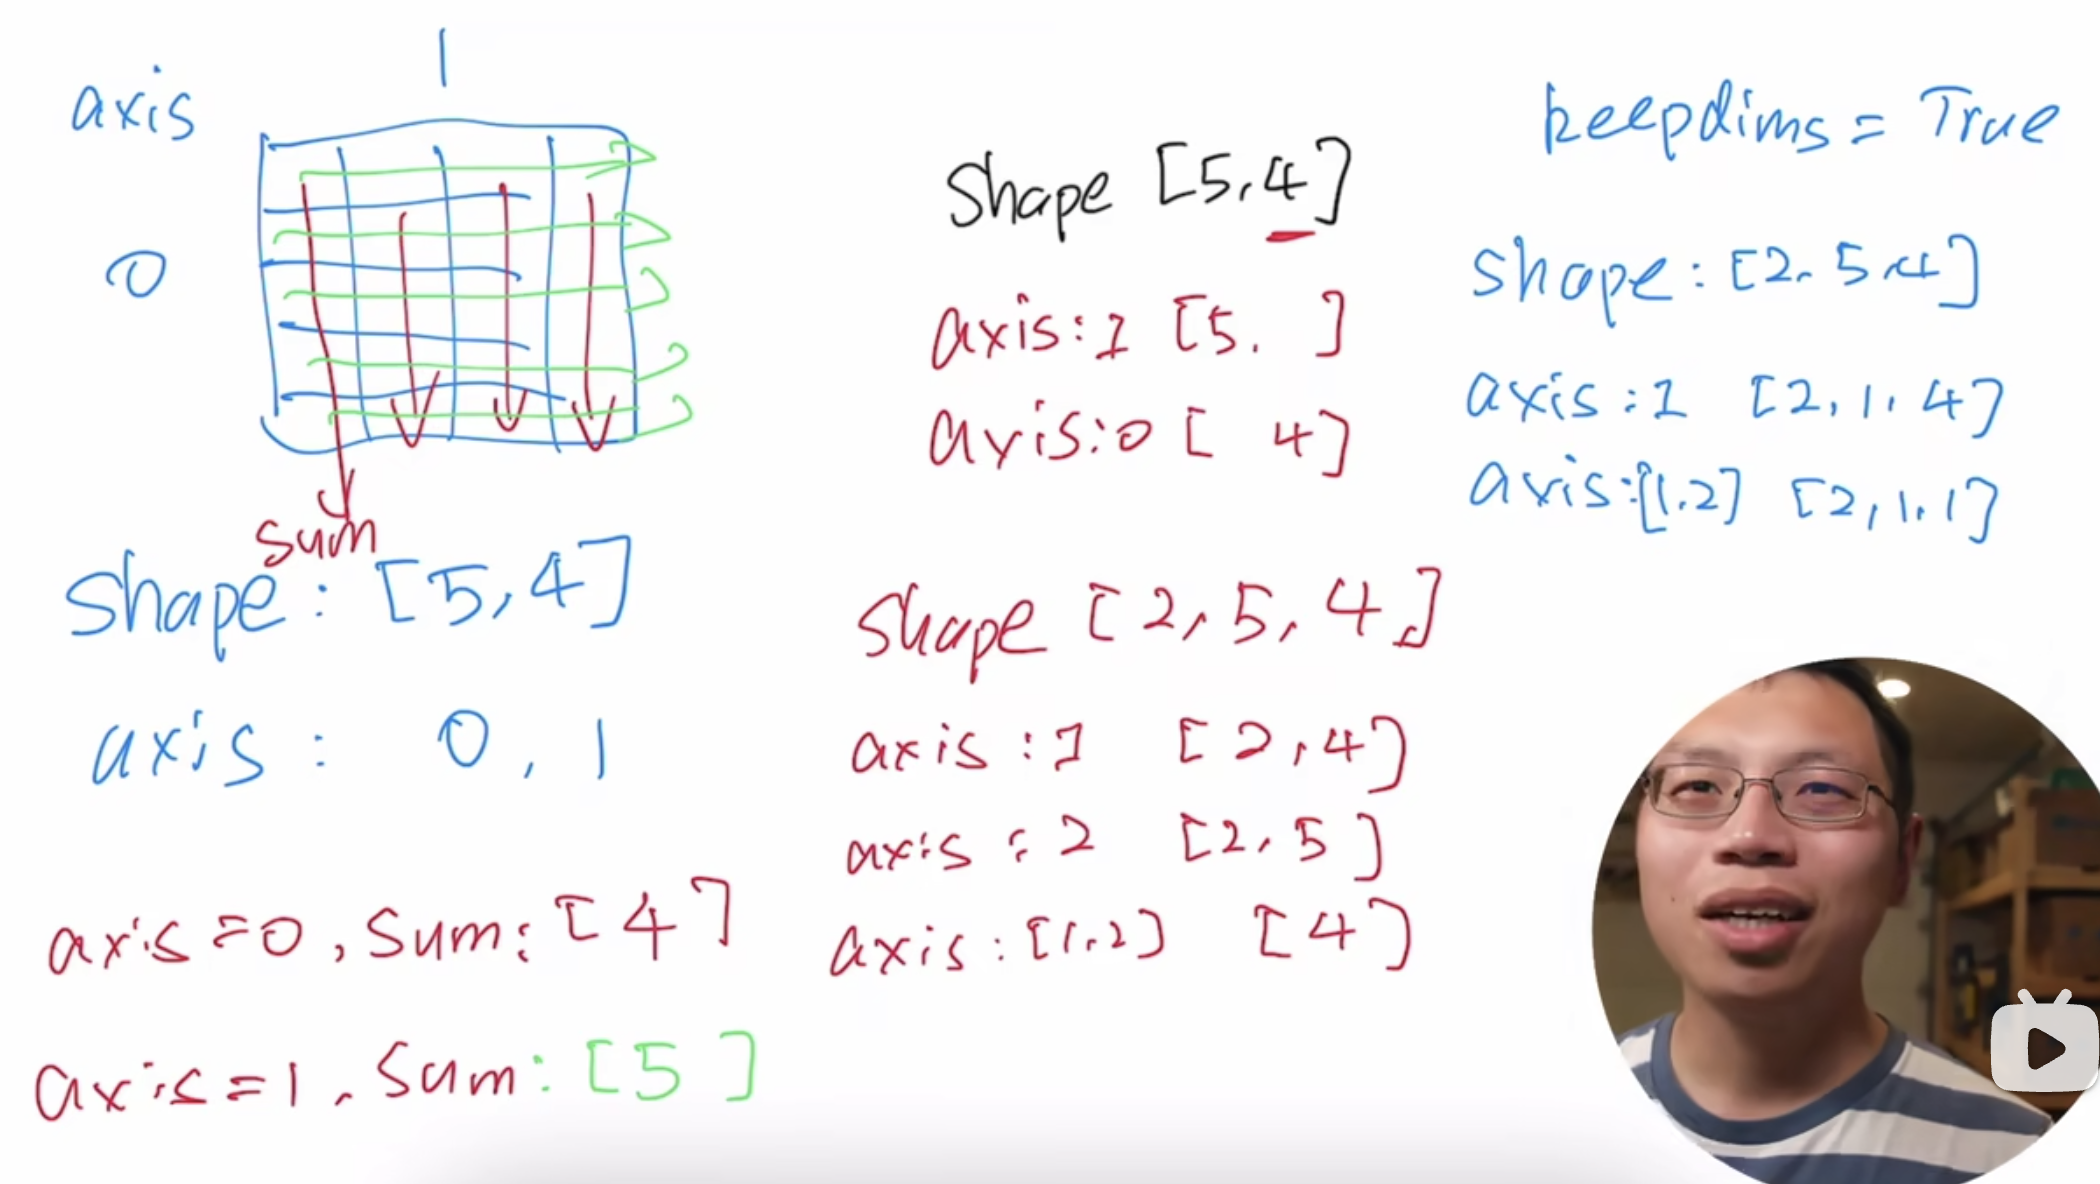 axis
1
0
sum
shape: [5,4]
axis: 0, 1
axis=0, sum: [4]
axis=1, sum: [5 ]
shape [5,4]
axis:1 [5. ]
axis:0 [ 4]
shape [2,5,4]
axis:1 [2,4]
axis:2 [2,5]
axis:[1,2] [4]
keepdims=True
shape:[2,5,4]
axis:1 [2,1,4]
axis:[1,2] [2,1,1]